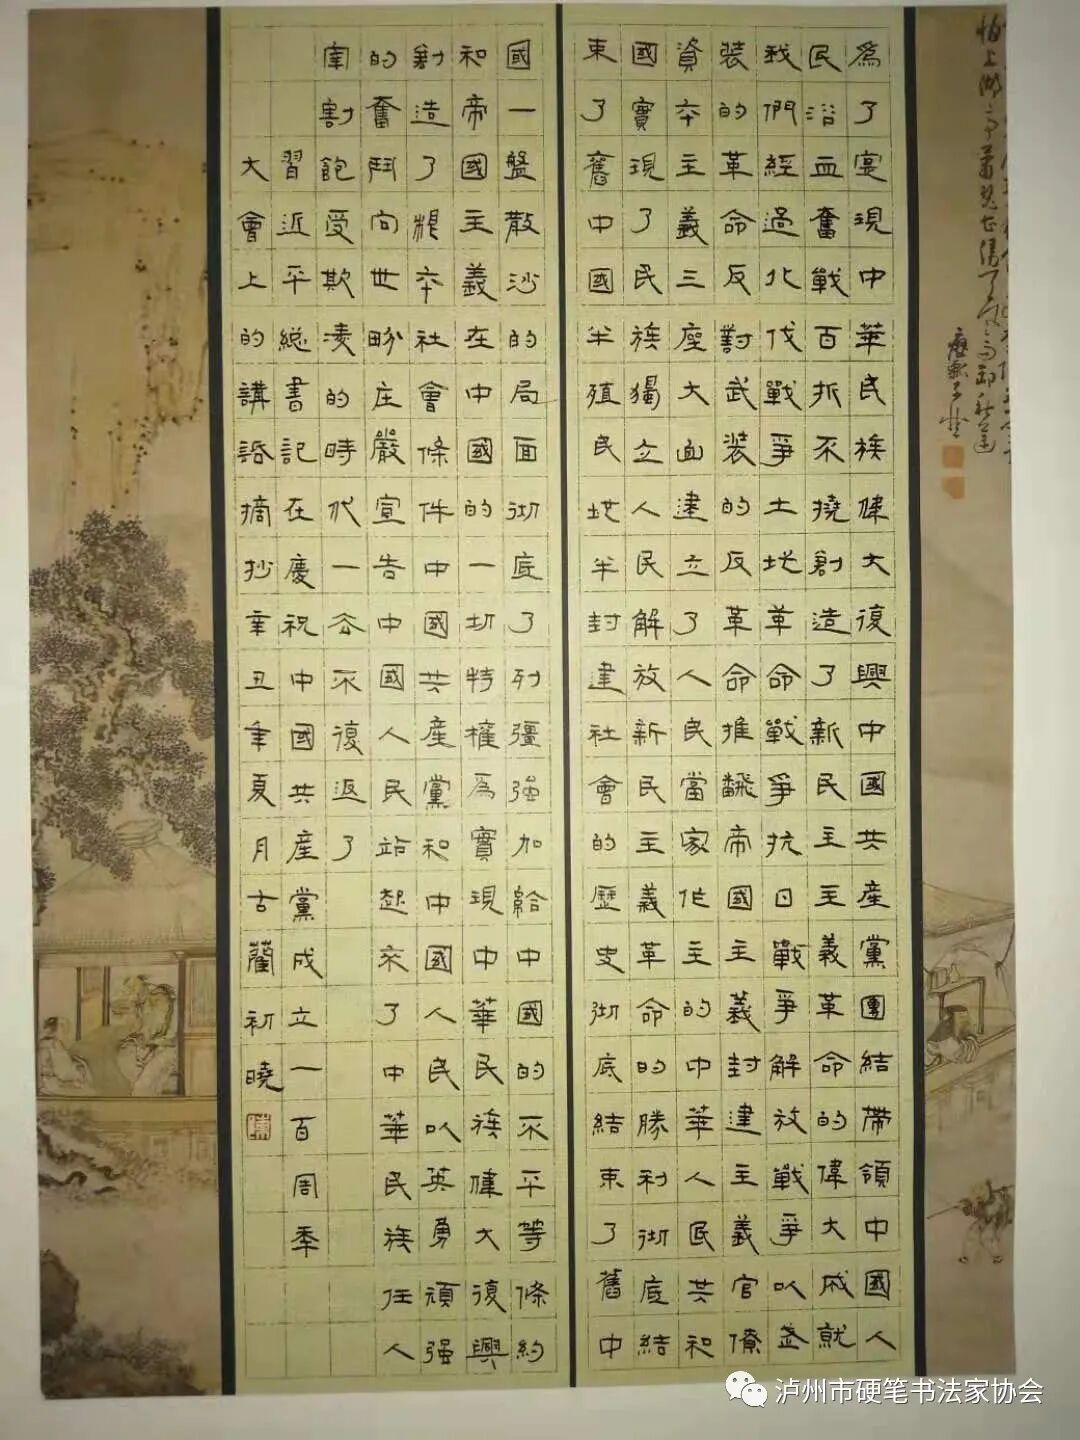 為了寔現中華民族偉大復興中國共産黨團結帶領中國人
民浴血奮戰百折不撓創造了新民主主義革命的偉大成就
我們經過北伐戰爭土地革命戰爭抗日戰爭解放戰爭以武
装的革命反對武装的反革命推翻帝國主義封建主義官僚
資本主義三座大山建立了人民當家作主的中華人民共和
國實現了民族獨立人民解放新民主義革命的勝利彻底結
束了舊中國半殖民地半封建社會的歷史彻底結束了舊中
國一盤散沙的局面彻底了列彊强加給中國的不平等條約
和帝國主義在中國的一切特權為實現中華民族偉大復興
創造了根本社會條件中國共産黨和中國人民以英勇頑强
的奮鬥向世界庄嚴宣告中國人民站起來了中華民族任人
宰割飽受欺凌的時代一去不復返了
習近平總書記在慶祝中國共産黨成立一百周年
大會上的講話摘抄辛丑年夏月古藺初曉
泸州市硬笔书法家协会